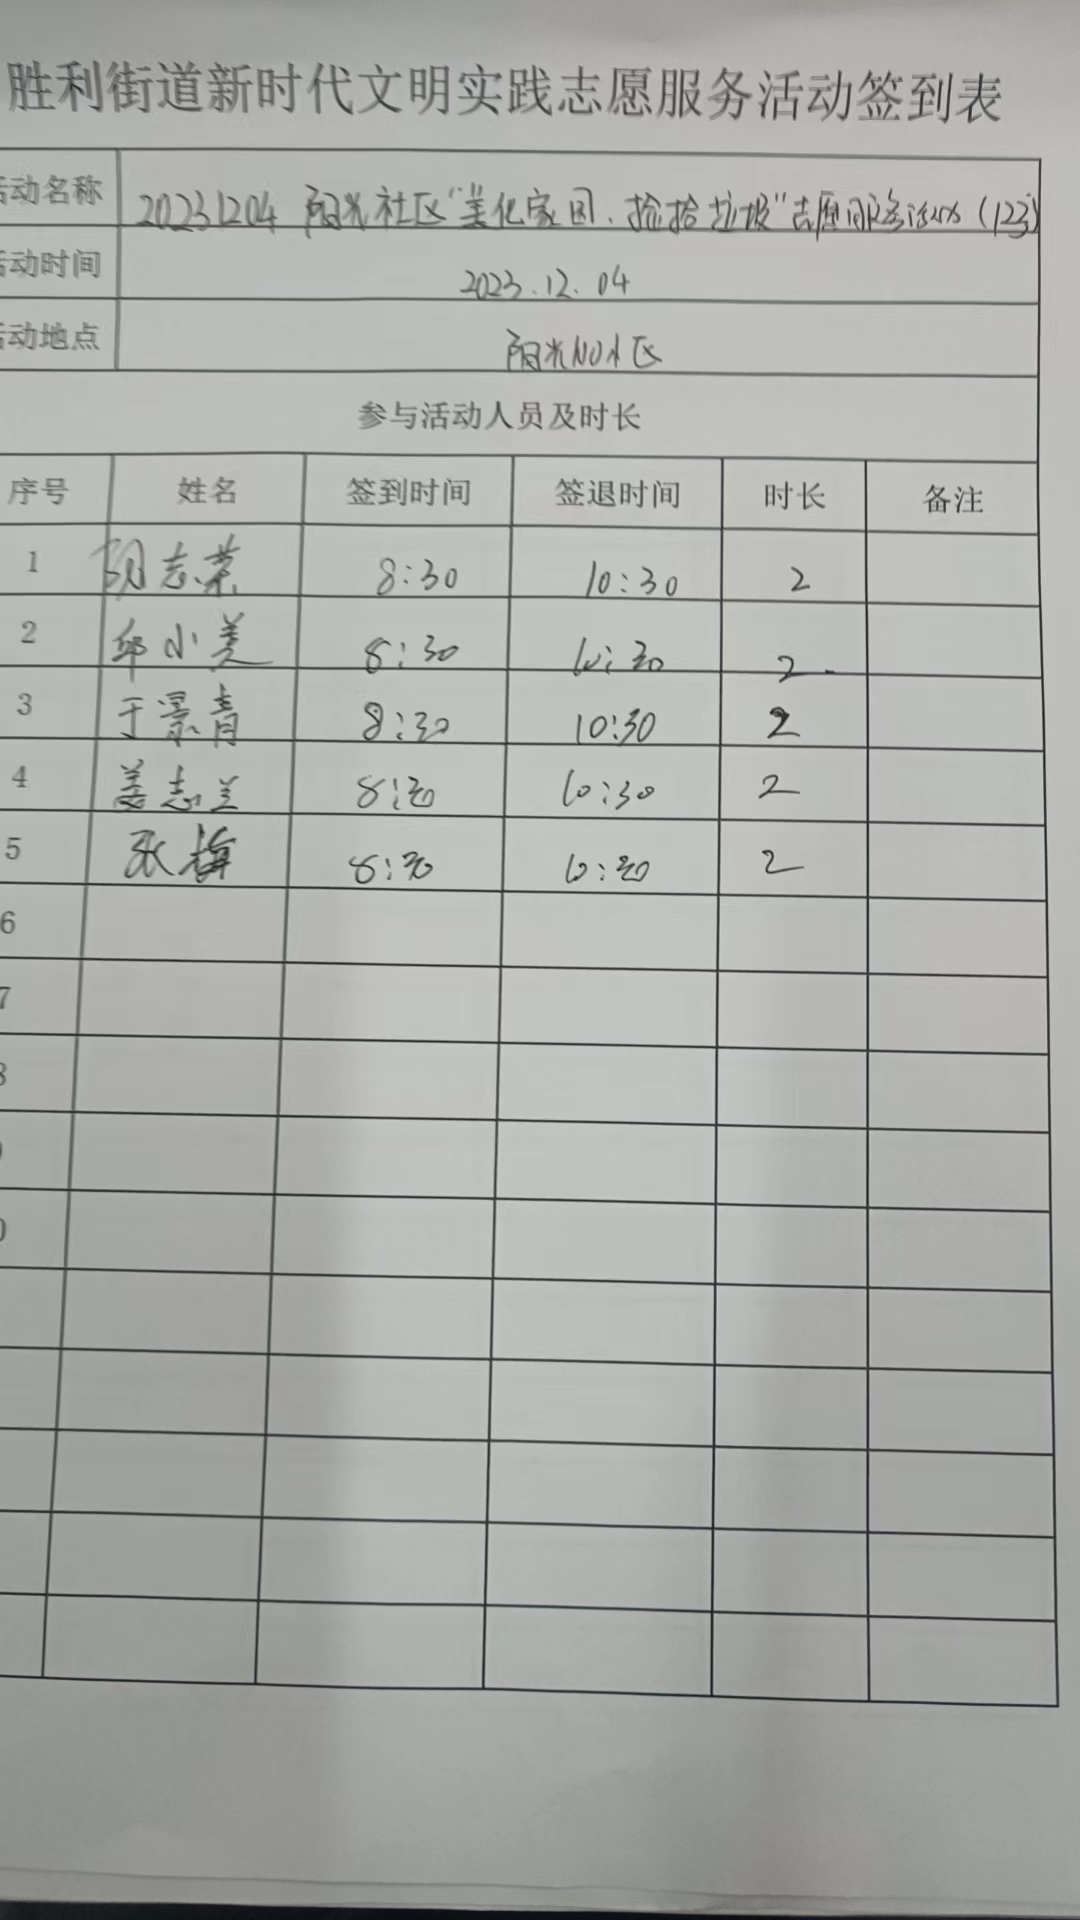 胜利街道新时代文明实践志愿服务活动签到表
活动名称 20231204 阳光社区“美化家园、捡拾垃圾”志愿服务活动(123)
活动时间 2023.12.04
活动地点 阳光100小区
参与活动人员及时长
序号 姓名 签到时间 签退时间 时长 备注
1 志荣 8:30 10:30 2
2 邱小美 8:30 10:30 2
3 于景青 8:30 10:30 2
4 姜志兰 8:30 10:30 2
5 张梅 8:30 10:30 2
6
7
8